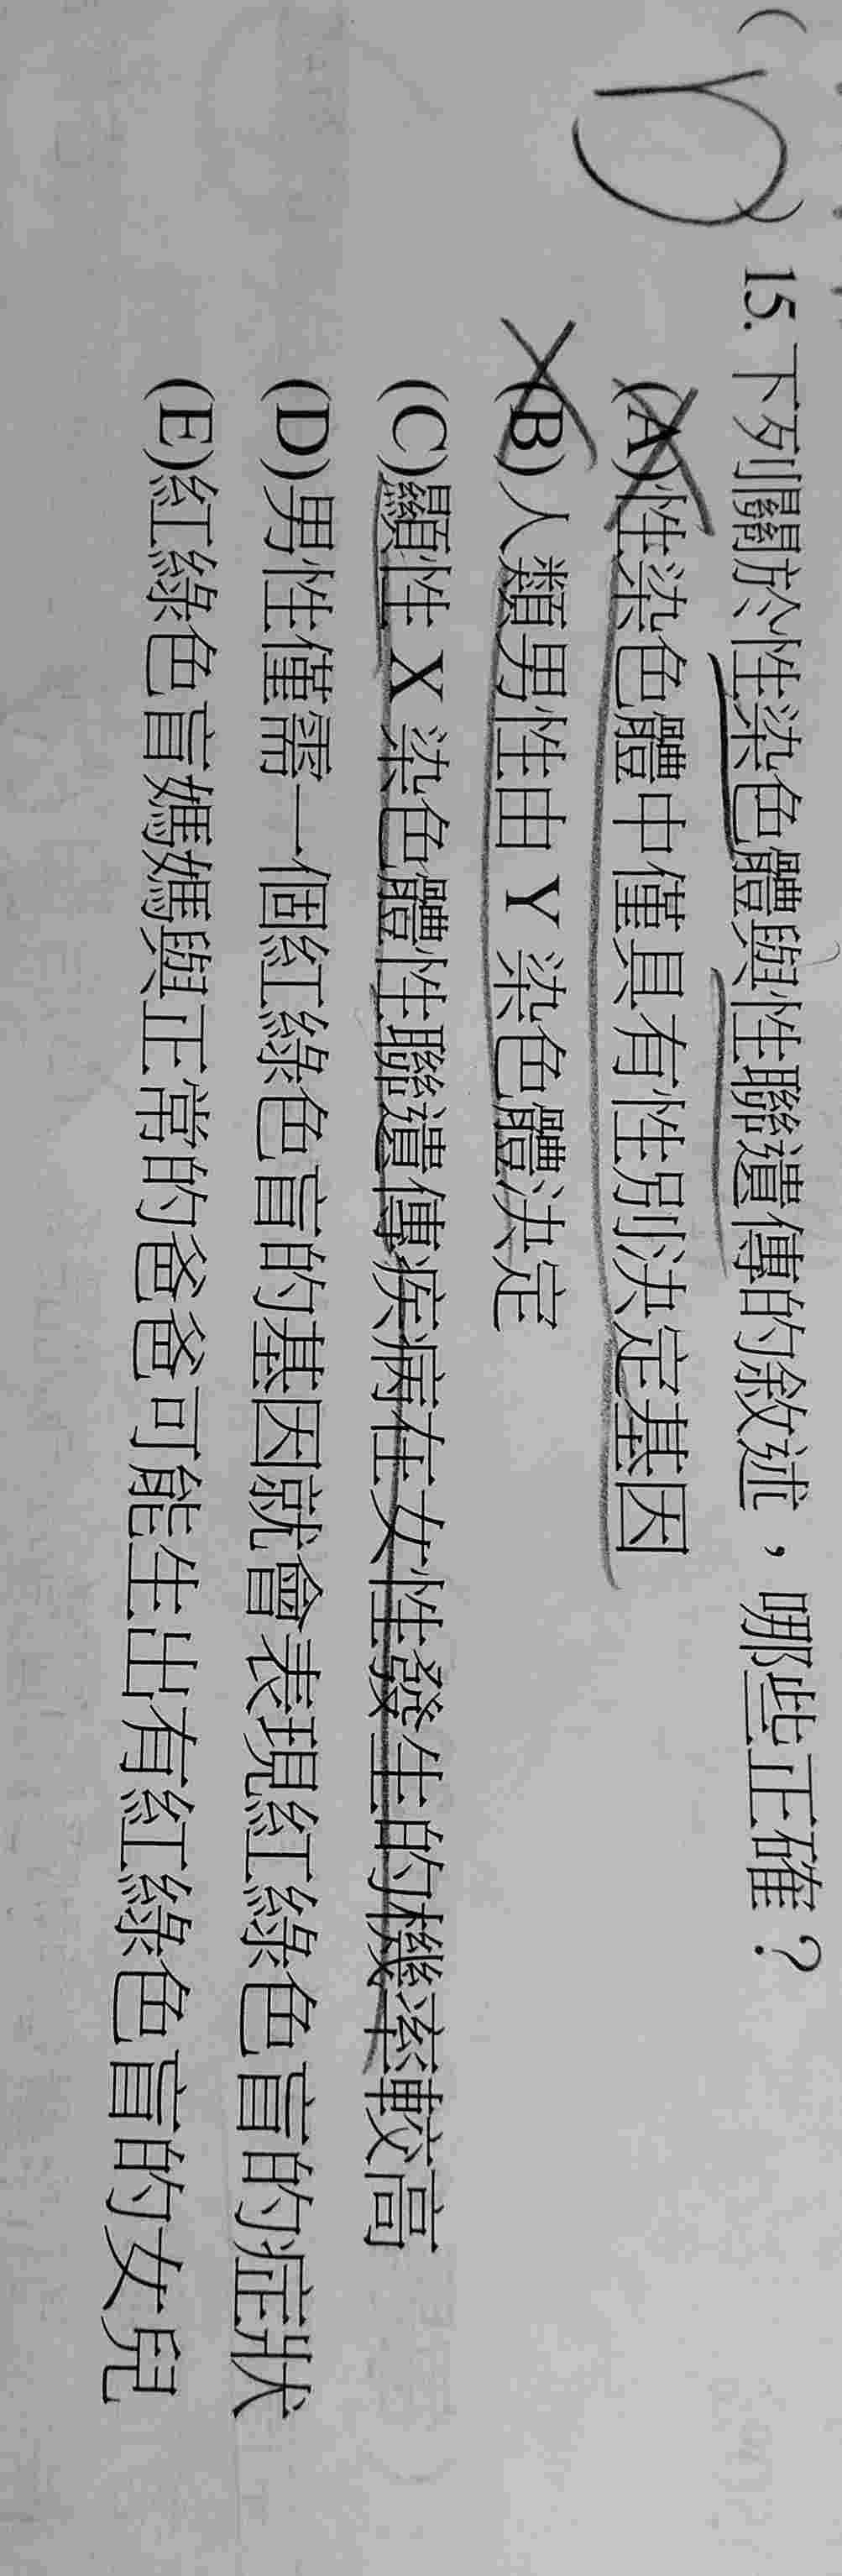 (D)15.下列關於性染色體與性聯遺傳的敘述，哪些正確？
(A)性染色體中僅具有性別決定基因
(B)人類男性由Y染色體決定
(C)顯性X染色體性聯遺傳疾病在女性發生的機率較高
(D)男性僅需一個紅綠色盲的基因就會表現紅綠色盲的症狀
(E)紅綠色盲媽媽與正常的爸爸可能生出有紅綠色盲的女兒